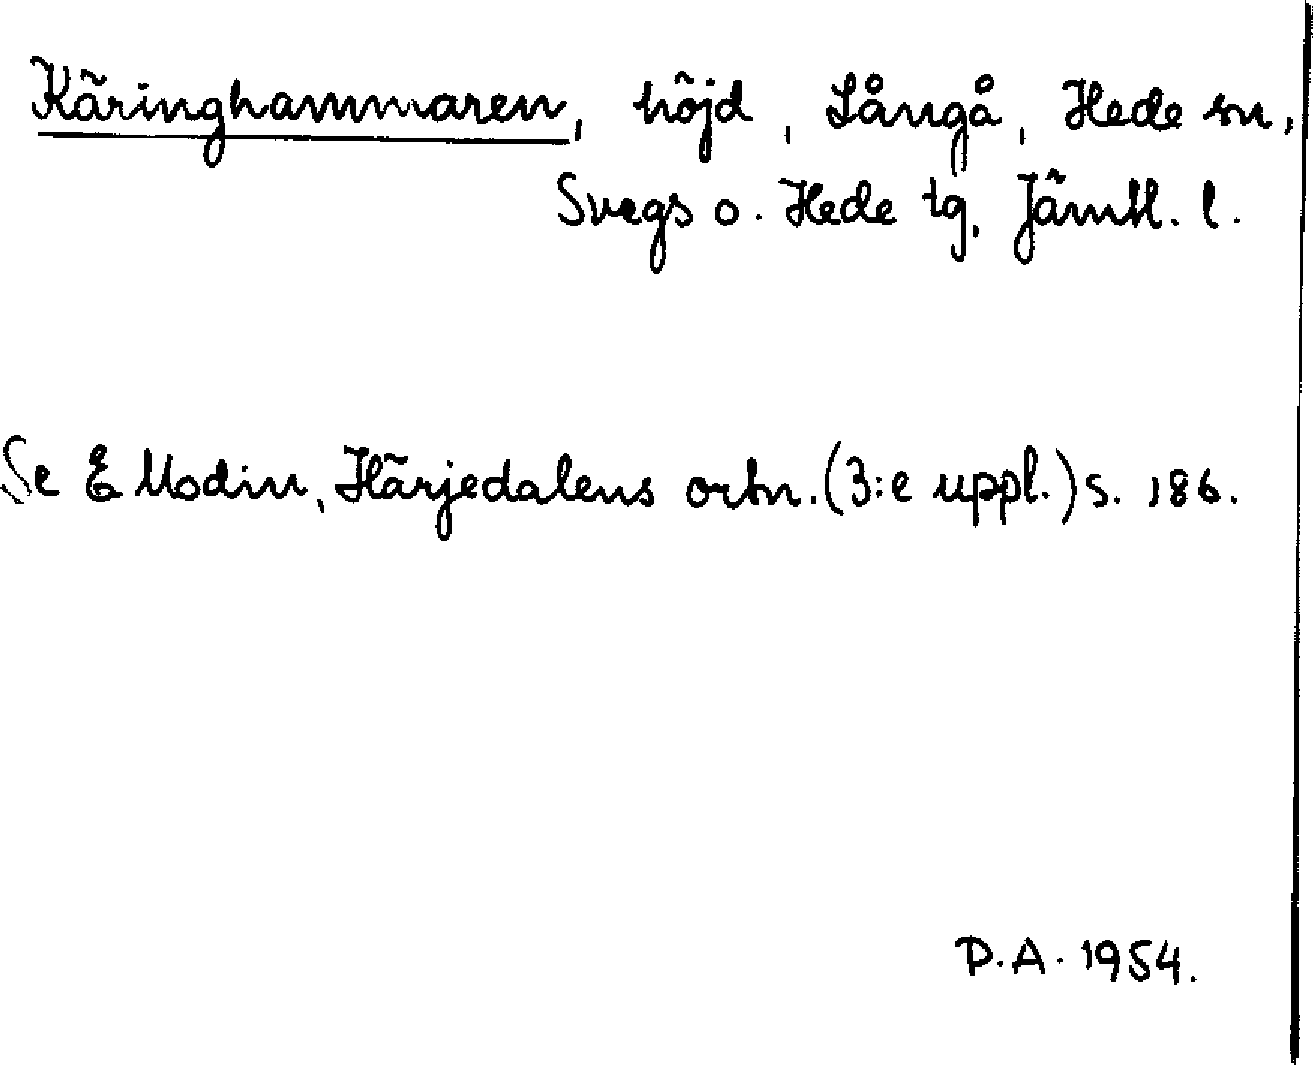 Käringhammaren, höjd, Långå, Hede sn,
Svegs o. Hede tg, Jämtl. l.
Se E Modin, Härjedalens ortn. (3:e uppl.) s. 186.
D.A. 1954.